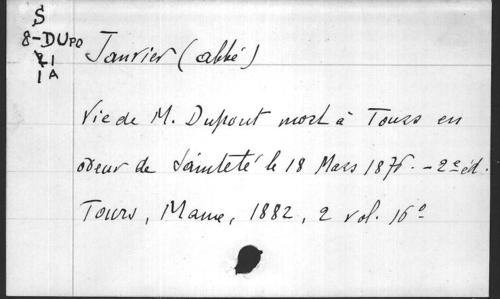 S
8-DUPO
R1
1A
Janvier (abbé)
Vie de M. Dupont mort à Tours en
odeur de Sainteté le 18 Mars 1876. - 2e éd.
Tours, Mame, 1882, 2 vol. 16°